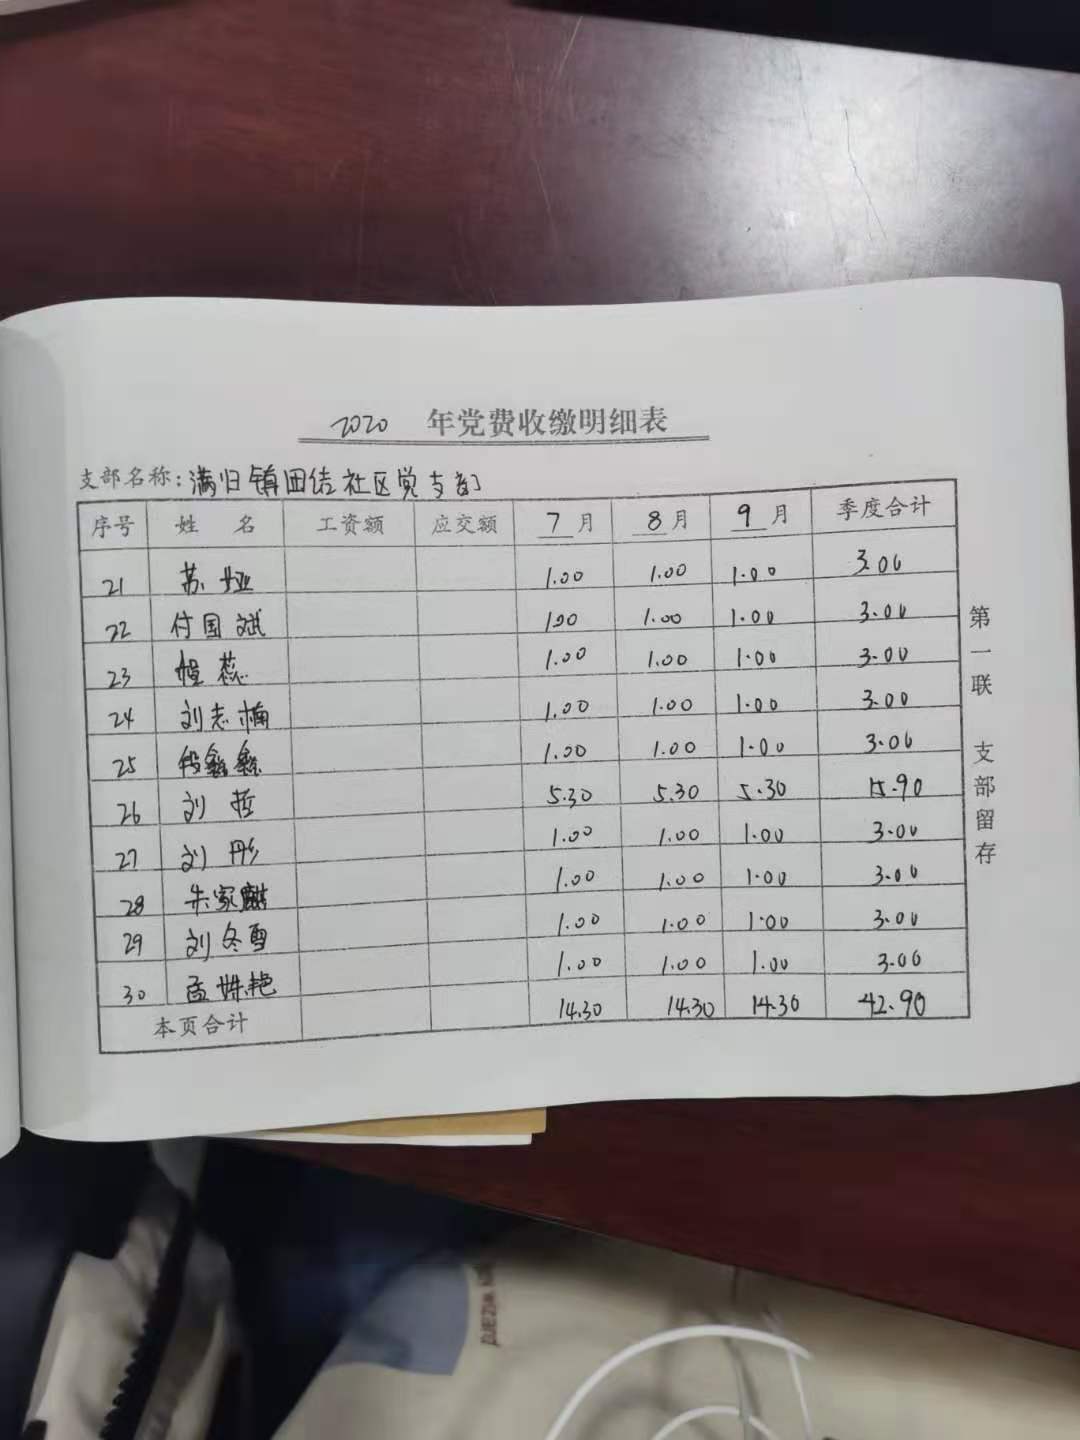 2020 年党费收缴明细表
支部名称：满归镇团结社区党支部
序号 姓 名 工资额 应交额 7月 8月 9月 季度合计
21 苏娅 1.00 1.00 1.00 3.00
22 付国斌 1.00 1.00 1.00 3.00
23 蕊 1.00 1.00 1.00 3.00
24 刘志楠 1.00 1.00 1.00 3.00
25 段鑫鑫 1.00 1.00 1.00 3.00
26 刘哲 5.30 5.30 5.30 15.90
27 刘彤 1.00 1.00 1.00 3.00
28 朱家麒 1.00 1.00 1.00 3.00
29 刘冬雪 1.00 1.00 1.00 3.00
30 孟姝艳 1.00 1.00 1.00 3.00
本页合计 14.30 14.30 14.30 42.90
第一联 支部留存